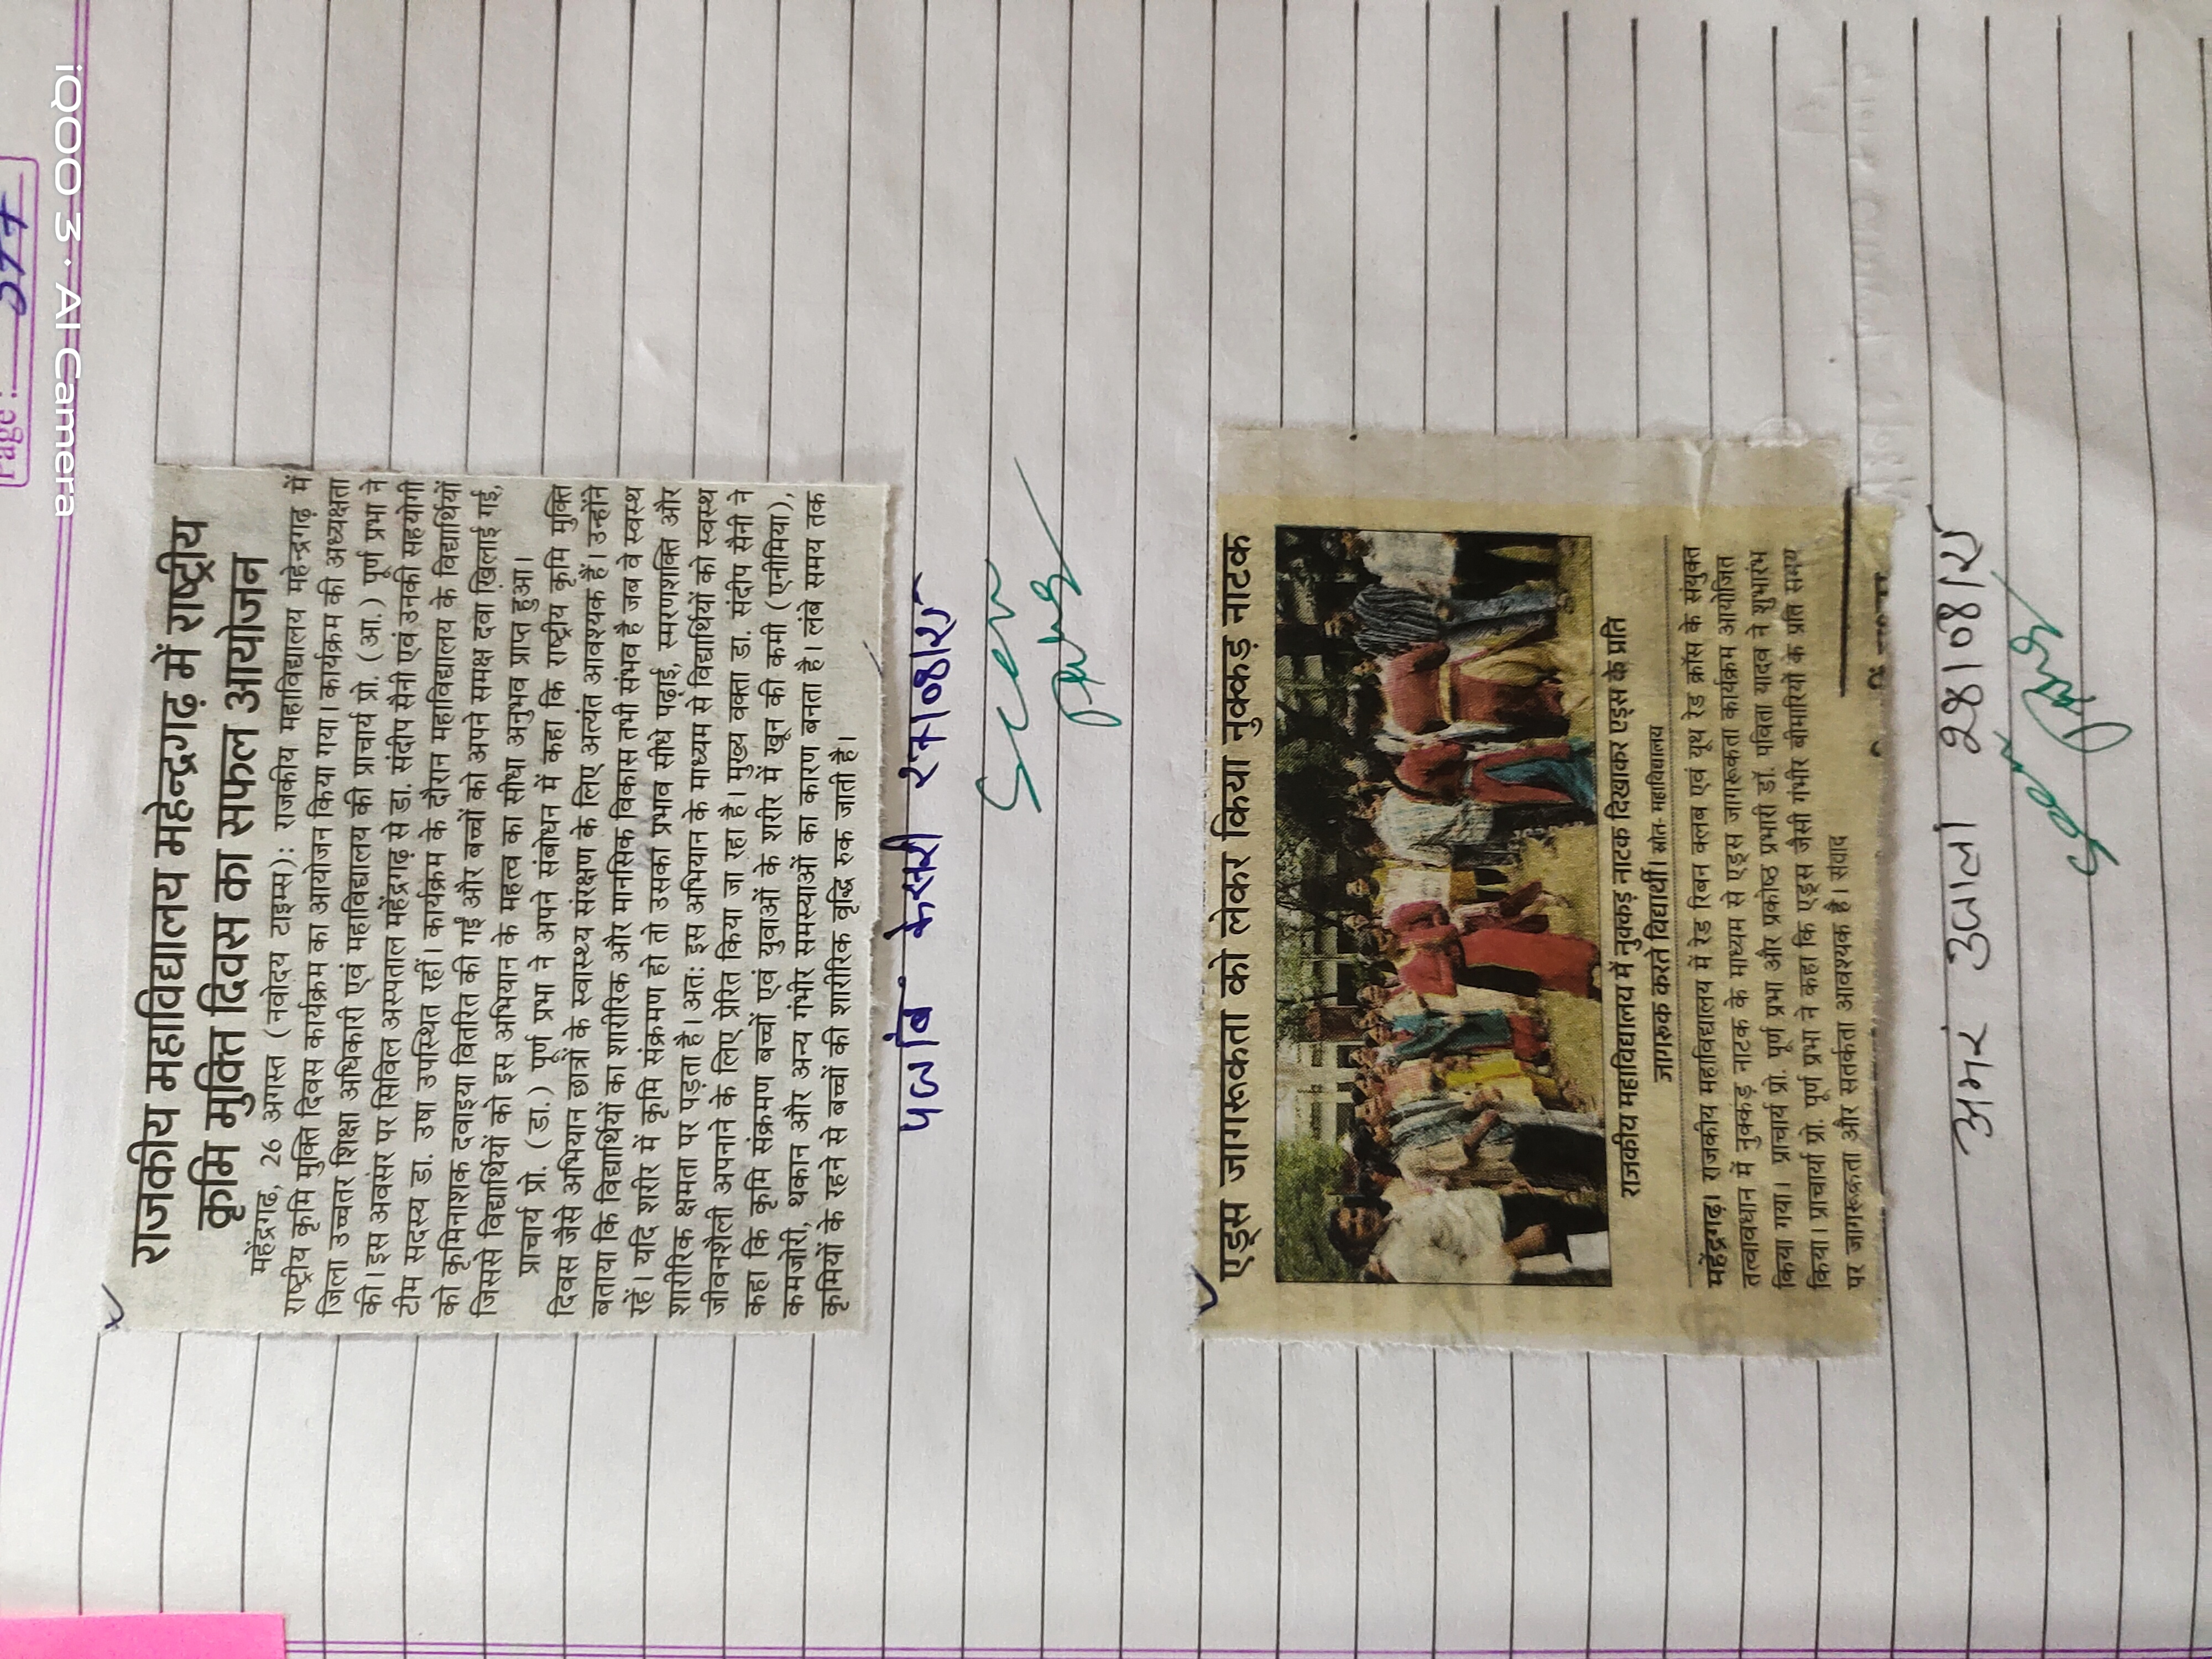 राजकीय महाविद्यालय महेन्द्रगढ़ में राष्ट्रीय
कृमि मुक्ति दिवस का सफल आयोजन
महेंद्रगढ, 26 अगस्त (नवोदय टाइम्स): राजकीय महाविद्यालय महेन्द्रगढ़ में
राष्ट्रीय कृमि मुक्ति दिवस कार्यक्रम का आयोजन किया गया। कार्यक्रम की अध्यक्षता
जिला उच्चतर शिक्षा अधिकारी एवं महाविद्यालय की प्राचार्य प्रो. (आ.) पूर्ण प्रभा ने
की। इस अवसर पर सिविल अस्पताल महेंद्रगढ़ से डा. संदीप सैनी एवं उनकी सहयोगी
टीम सदस्य डा. उषा उपस्थित रहीं। कार्यक्रम के दौरान महाविद्यालय के विद्यार्थियों
को कृमिनाशक दवाइया वितरित की गईं और बच्चों को अपने समक्ष दवा खिलाई गई,
जिससे विद्यार्थियों को इस अभियान के महत्व का सीधा अनुभव प्राप्त हुआ।
प्राचार्य प्रो. (डा.) पूर्ण प्रभा ने अपने संबोधन में कहा कि राष्ट्रीय कृमि मुक्ति
दिवस जैसे अभियान छात्रों के स्वास्थ्य संरक्षण के लिए अत्यंत आवश्यक हैं। उन्होंने
बताया कि विद्यार्थियों का शारीरिक और मानसिक विकास तभी संभव है जब वे स्वस्थ
रहें। यदि शरीर में कृमि संक्रमण हो तो उसका प्रभाव सीधे पढ़ाई, स्मरणशक्ति और
शारीरिक क्षमता पर पड़ता है। अतः इस अभियान के माध्यम से विद्यार्थियों को स्वस्थ
जीवनशैली अपनाने के लिए प्रेरित किया जा रहा है। मुख्य वक्ता डा. संदीप सैनी ने
कहा कि कृमि संक्रमण बच्चों एवं युवाओं के शरीर में खून की कमी (एनीमिया),
कमजोरी, थकान और अन्य गंभीर समस्याओं का कारण बनता है। लंबे समय तक
कृमियों के रहने से बच्चों की शारीरिक वृद्धि रुक जाती है।
पजांब केसरी २७/०8/२५
एड्स जागरूकता को लेकर किया नुक्कड़ नाटक
राजकीय महाविद्यालय में नुक्कड़ नाटक दिखाकर एड्स के प्रति
जागरूक करते विद्यार्थी। स्रोत- महाविद्यालय
महेंद्रगढ़। राजकीय महाविद्यालय में रेड रिबन क्लब एवं यूथ रेड क्रॉस के संयुक्त
तत्वावधान में नुक्कड़ नाटक के माध्यम से एड्स जागरूकता कार्यक्रम आयोजित
किया गया। प्राचार्य प्रो. पूर्ण प्रभा और प्रकोष्ठ प्रभारी डॉ. पविता यादव ने शुभारंभ
किया। प्राचार्या प्रो. पूर्ण प्रभा ने कहा कि एड्स जैसी गंभीर बीमारियों के प्रति समय
पर जागरूकता और सतर्कता आवश्यक है। संवाद
अमर उजाला २8/०8/२५
Page :
iQOO 3 · AI Camera